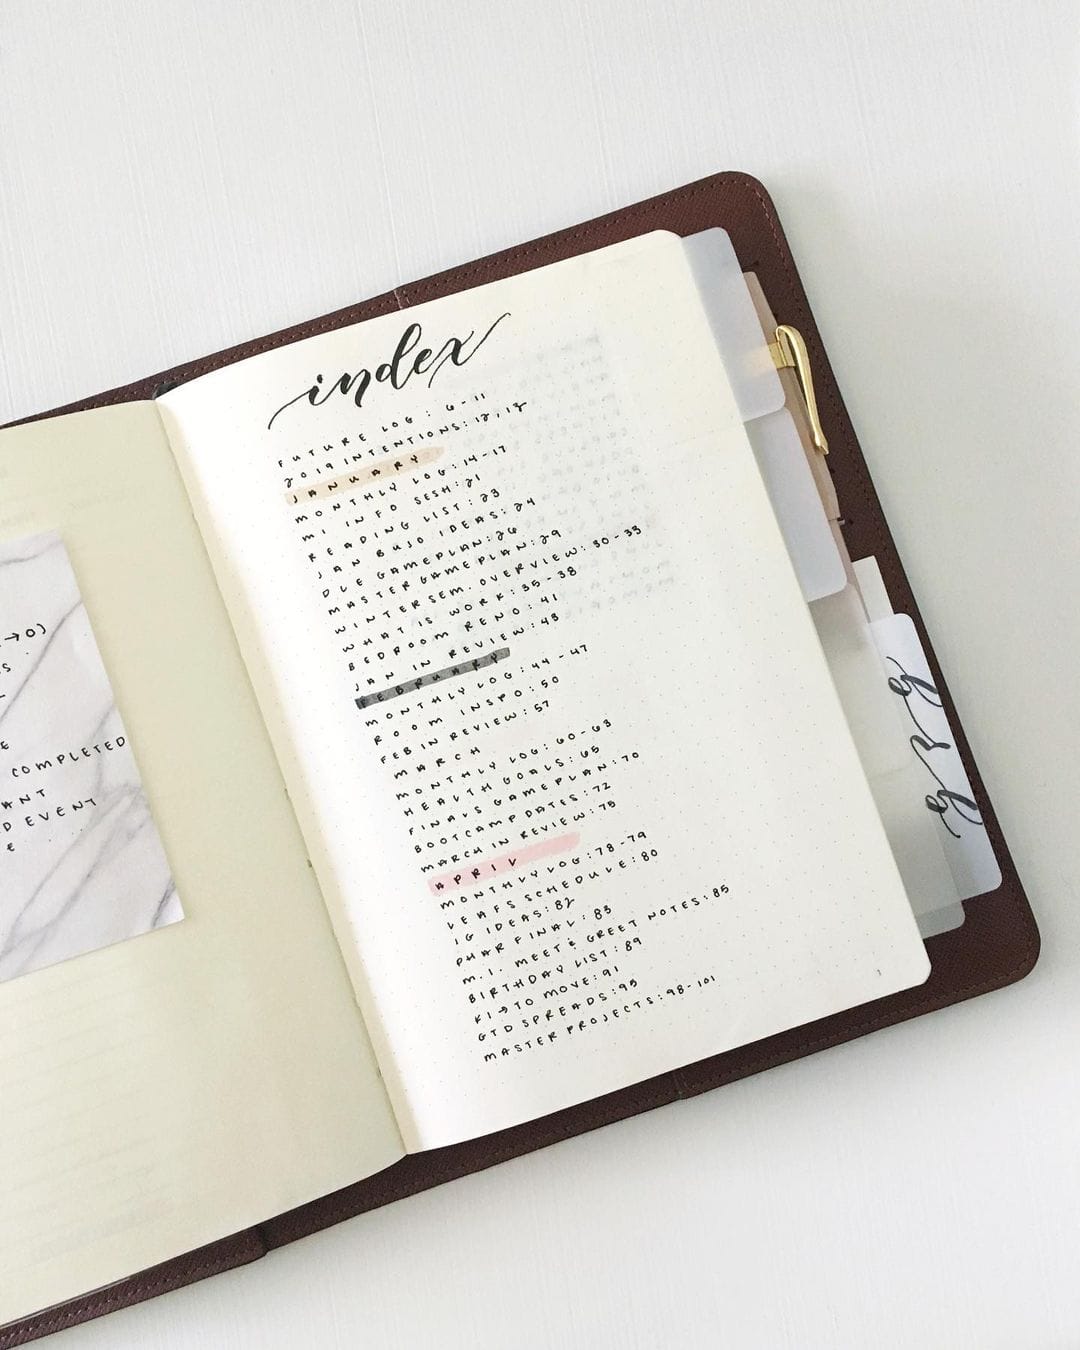 →0)
S
E
COMPLETED
ANT
D EVENT
E
index
FUTURE LOG: 6-11
2019 INTENTIONS: 12, 13
JANUARY
MONTHLY LOG: 14-17
MI INFO SESH: 21
READING LIST: 23
JAN BUJO IDEAS: 24
DLE GAMEPLAN: 26
MASTER GAMEPLAN: 29
WINTER SEM. OVERVIEW: 30-33
WHAT IS WORK: 35-38
BEDROOM RENO: 41
JAN IN REVIEW: 43
FEBRUARY
MONTHLY LOG: 44-47
ROOM INSPO: 50
FEB IN REVIEW: 57
MARCH
MONTHLY LOG: 60-63
HEALTH GOALS: 65
FINALS GAMEPLAN: 70
BOOTCAMP DATES: 72
MARCH IN REVIEW: 75
APRIL
MONTHLY LOG: 78-79
LEAFS SCHEDULE: 80
IG IDEAS: 82
PHAR FINAL: 83
M.I. MEET & GREET NOTES: 85
BIRTHDAY LIST: 89
KI → TO MOVE: 91
GTD SPREADS: 95
MASTER PROJECTS: 98-101
1